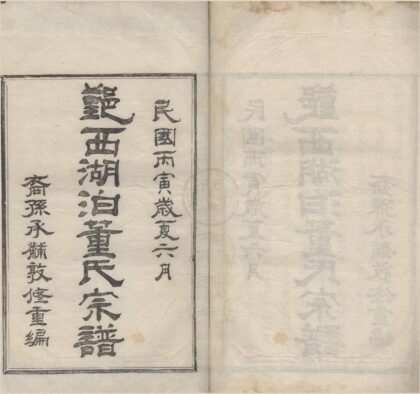 民國丙寅歲夏六月
甬西湖泊董氏宗譜
裔孫承黼敦修重編